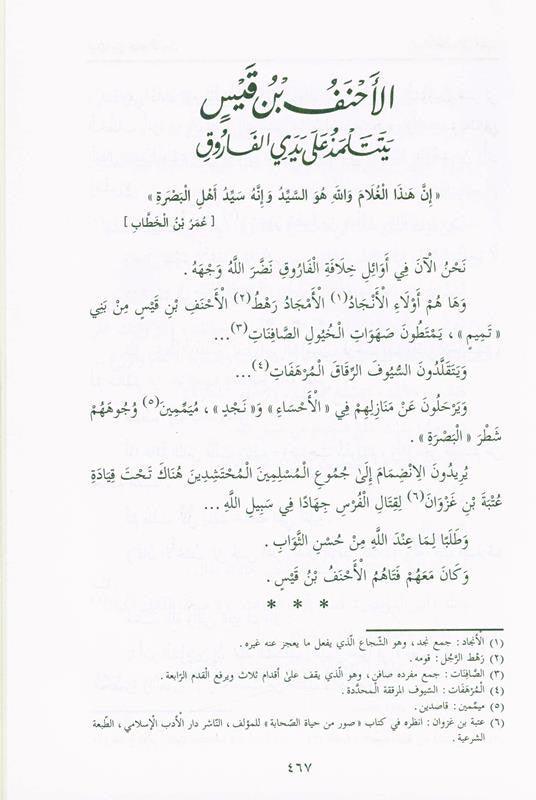 الأَحْنَفُ بْنُ قَيْسٍ
يَتَتَلْمَذُ عَلَى يَدَيِ الفَارُوقِ
« إِنَّ هَـٰذَا الْغُلَامَ وَاللهِ هُوَ السَّيِّدُ وَإِنَّهُ سَيِّدُ أَهْلِ الْبَصْرَةِ »
[ عُمَرُ بْنُ الْخَطَّابِ ]
نَحْنُ الْآنَ فِي أَوَائِلِ خِلَافَةِ الْفَارُوقِ نَضَّرَ اللَّهُ وَجْهَهُ .
وَهَا هُمْ أُوْلَاءِ الْأَنْجَادُ(١) الْأَمْجَادُ رَهْطُ(٢) الْأَحْنَفِ بْنِ قَيْسٍ مِنْ بَنِي
« تَمِيمٍ » ، يَمْتَطُونَ صَهَوَاتِ الْخُيُولِ الصَّافِنَاتِ(٣)...
وَيَتَقَلَّدُونَ السُّيُوفَ الرِّقَاقَ الْمُرْهَفَاتِ(٤)...
وَيَرْحَلُونَ عَنْ مَنَازِلِهِمْ فِي « الْأَحْسَاءِ » وَ« نَجْدٍ » ، مُيَمِّمِينَ(٥) وُجُوهَهُمْ
شَطْرَ « الْبَصْرَةِ » .
يُرِيدُونَ الِانْضِمَامَ إِلَىٰ جُمُوعِ الْمُسْلِمِينَ الْمُحْتَشِدِينَ هُنَاكَ تَحْتَ قِيَادَةِ
عُتْبَةَ بْنِ غَزْوَانَ(٦) لِقِتَالِ الْفُرْسِ جِهَادًا فِي سَبِيلِ اللَّهِ ...
وَطَلَبًا لِمَا عِنْدَ اللَّهِ مِنْ حُسْنِ الثَّوَابِ .
وَكَانَ مَعَهُمْ فَتَاهُمُ الْأَحْنَفُ بْنُ قَيْسٍ .
* * *
(١) الْأَنجاد : جمع نجد ، وهو الشّجاع الّذي يفعل ما يعجز عنه غيره .
(٢) رَهْط الرَّجُل : قومه .
(٣) الصَّافِنَات : جمع مفرده صافن ، وهو الّذي يقف علىٰ أقدام ثلاث ويرفع القدم الرّابعة .
(٤) الْمُرْهَفَات : السّيوف المرققة الْمحدّدة .
(٥) ميمّمين : قاصدين .
(٦) عتبة بن غزوان : انظره في كتاب « صور من حياة الصّحابة » للمؤلف ، النّاشر دار الْأدب الْإسلامي ، الطّبعة
الشرعية .
٤٦٧